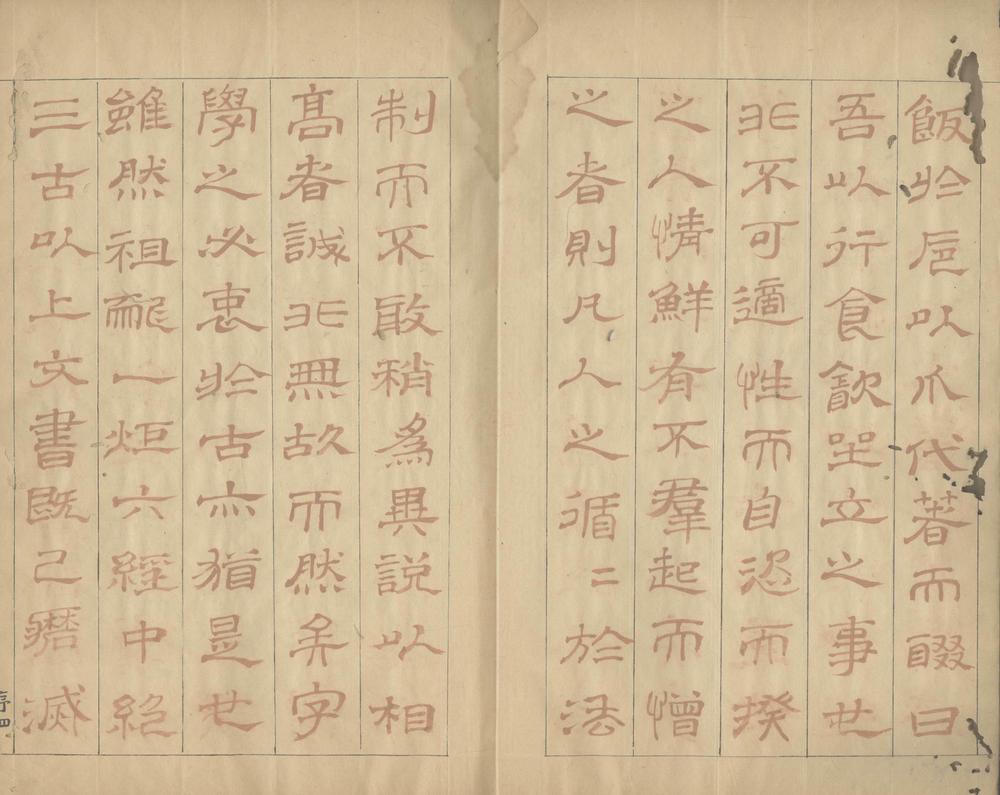 飯於卮以爪代著而啜曰
吾以行食飲坐立之事世
非不可適性而自恣而揆
之人情鮮有不羣起而憎
之者則凡人之循二於法
制而不敢稍為異說以相
高者誠非無故而然矣字
學之必衷於古亦猶是世
雖然祖龍一炬六經中絕
三古以上文書既已滅
序四